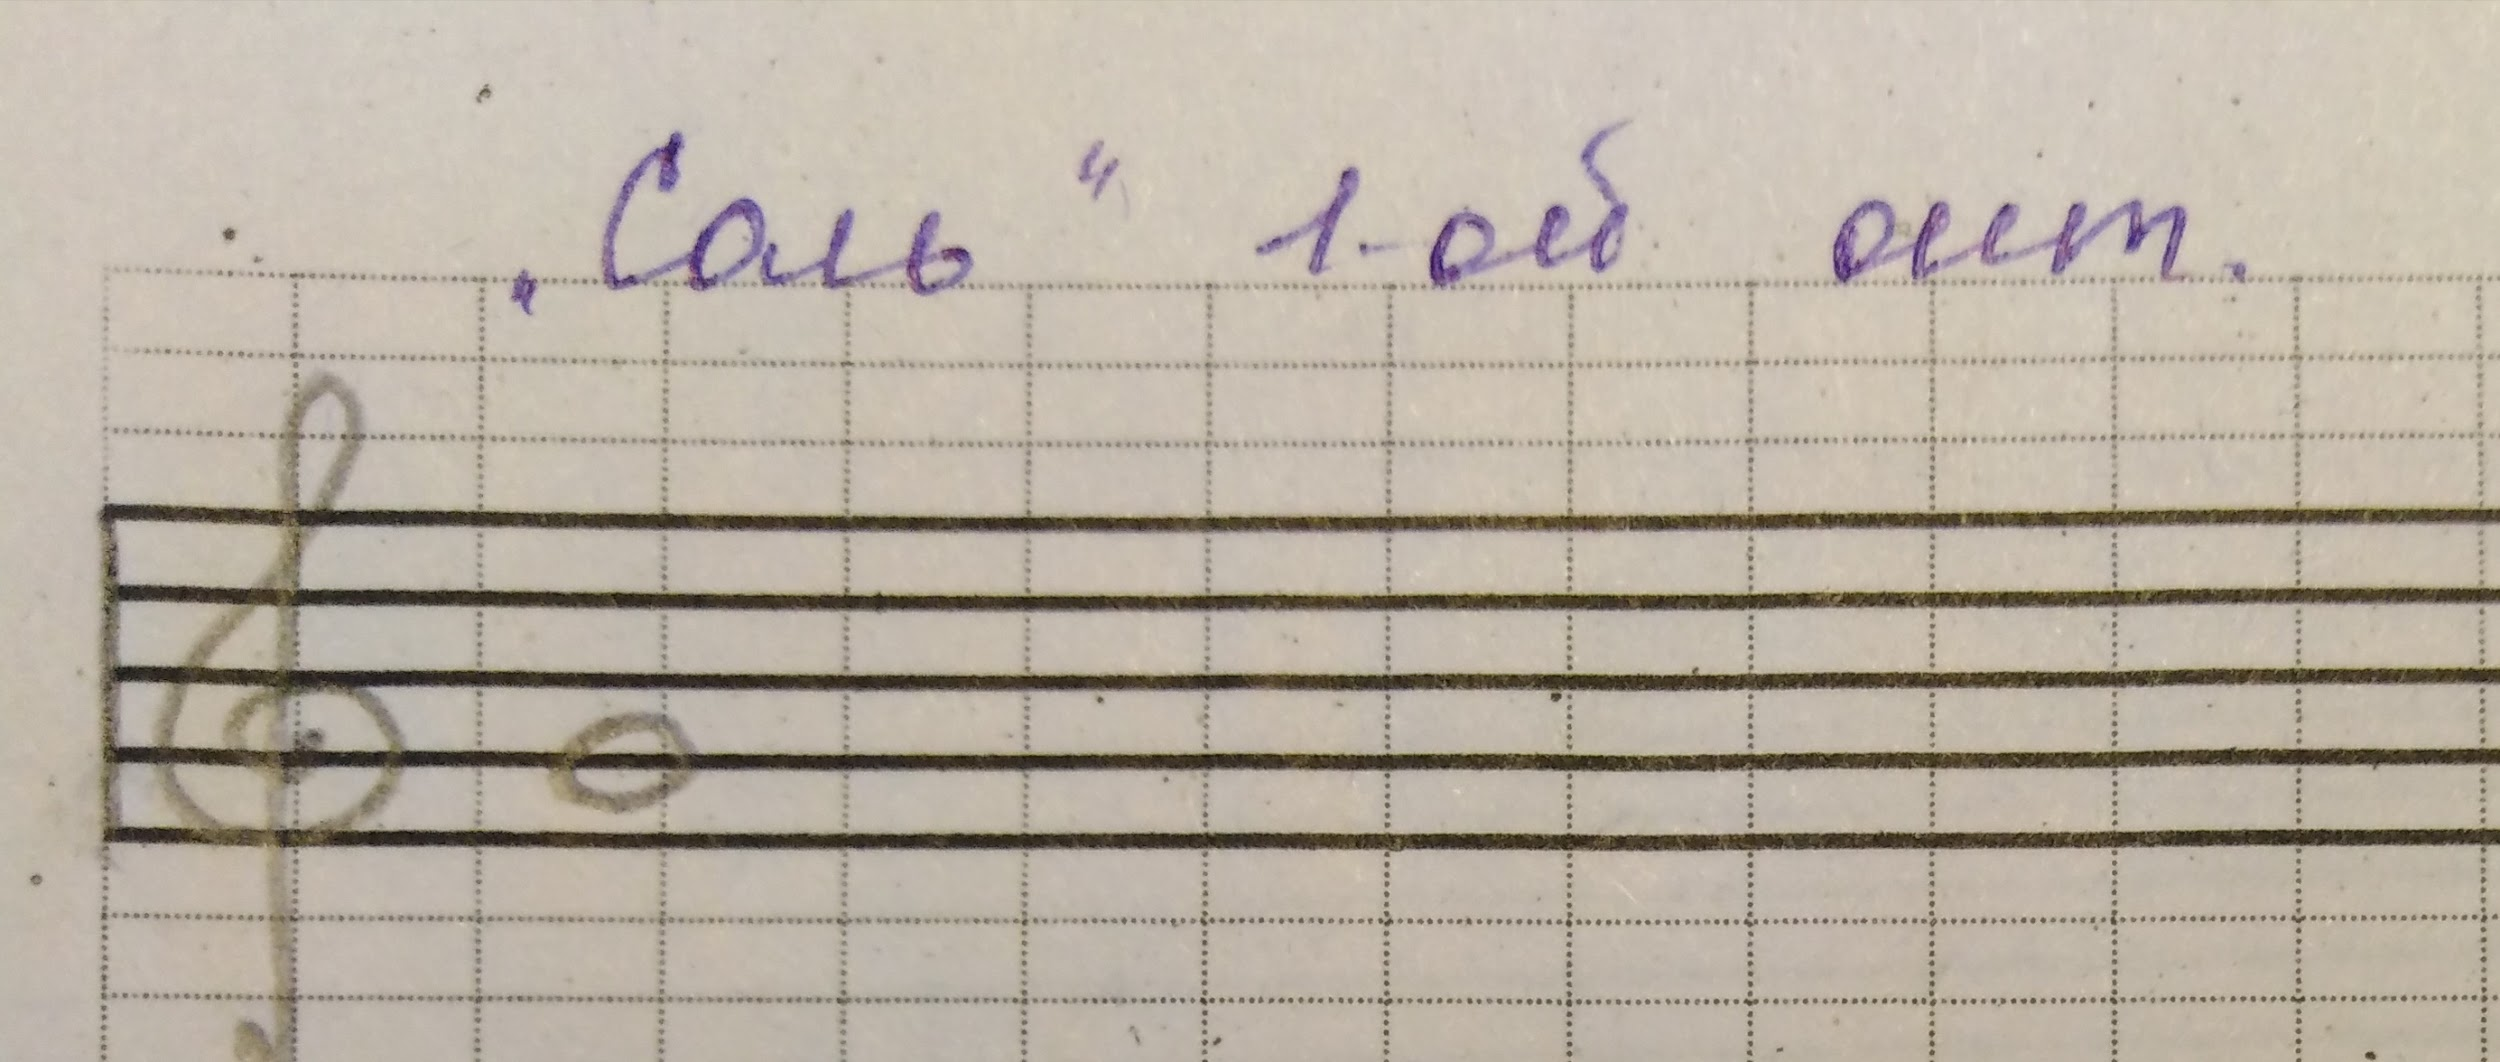 „Соль“ 1-ой окт.